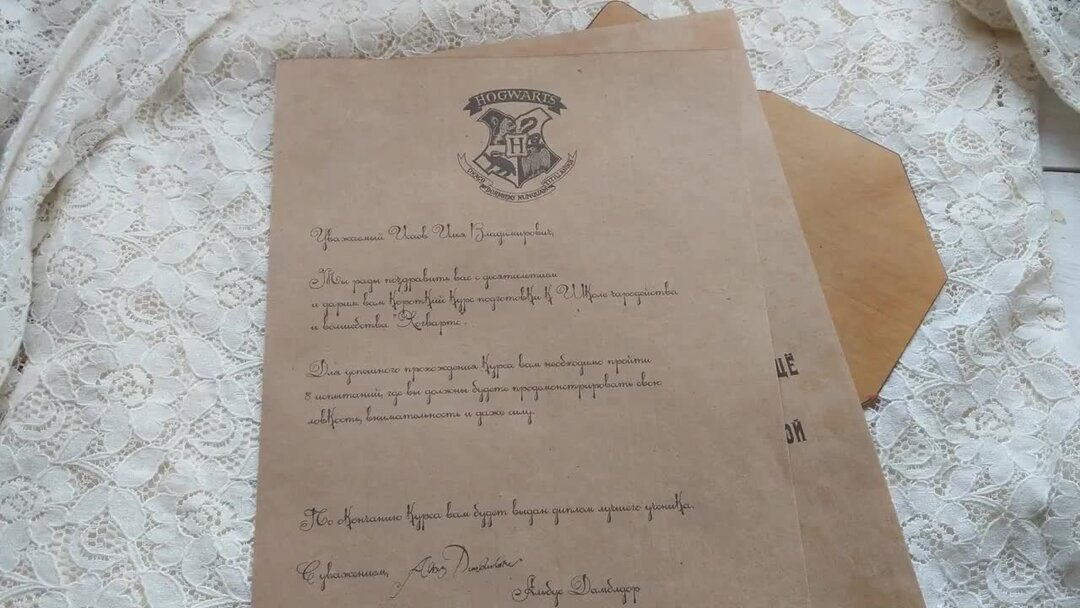 HOGWARTS
H
DRACO DORMIENS NUNQUAM TITILLANDUS
Уважаемый Усов Илья Владимирович,
Мы рады поздравить вас с десятилетием
и дарим вам короткий курс подготовки к Школе чародейства
и волшебства "Хогвартс".
Для успешного прохождения курса вам необходимо пройти
8 испытаний, где вы должны будете продемонстрировать свою
ловкость, внимательность и даже силу.
ЩЁ
ОЙ
По окончанию курса вам будет выдан диплом лучшего ученика.
С уважением,
Альбус Дамблдор